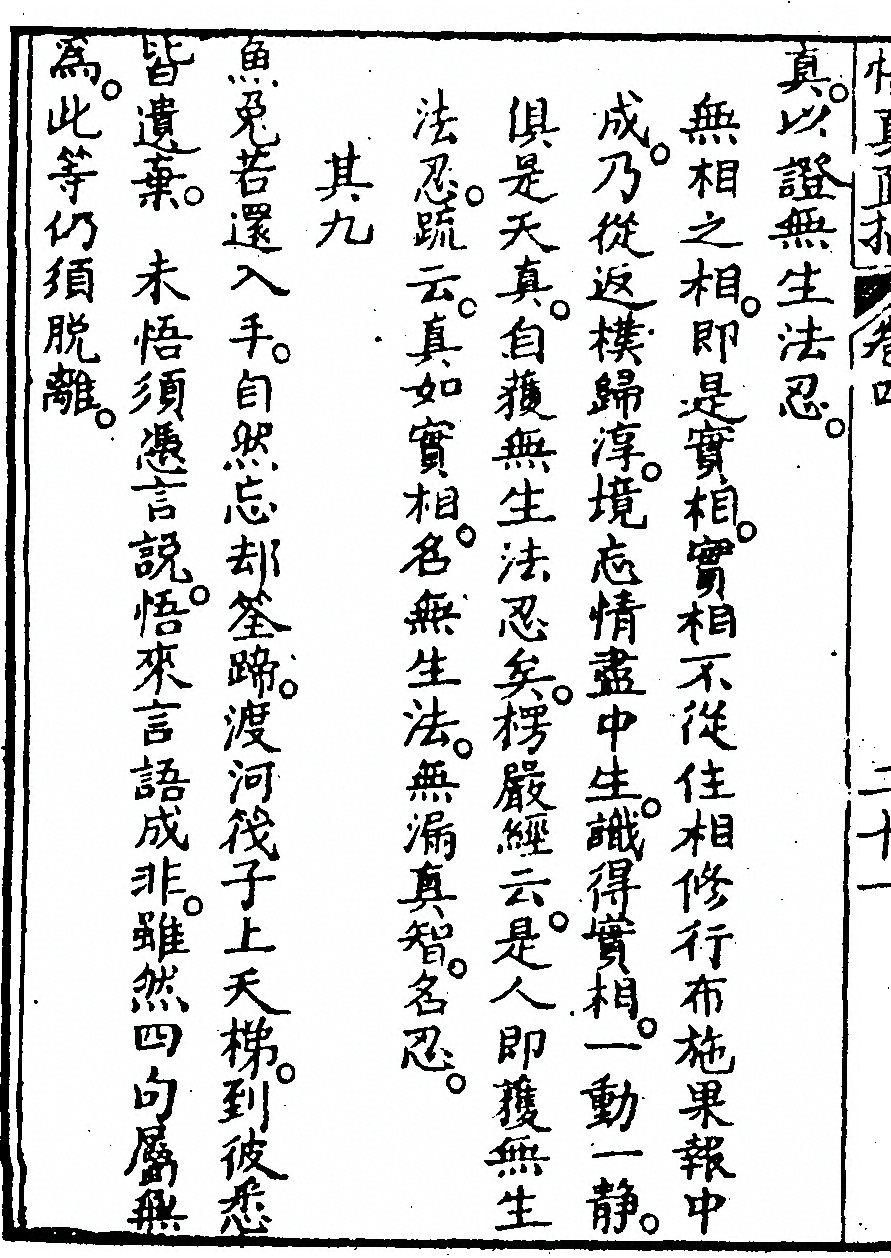 悟真直指 卷四 二十一
真。以證無生法忍。
無相之相。即是實相。實相不從住相修行布施果報中
成。乃從返樸歸淳。境忘情盡中生。識得實相。一動一靜。
俱是天真。自獲無生法忍矣。楞嚴經云。是人即獲無生
法忍。疏云。真如實相。名無生法。無漏真智。名忍。
其九
魚兔若還入手。自然忘却筌蹄。渡河筏子上天梯。到彼悉
皆遺棄。 未悟須憑言說。悟來言語成非。雖然四句屬無
為。此等仍須脫離。